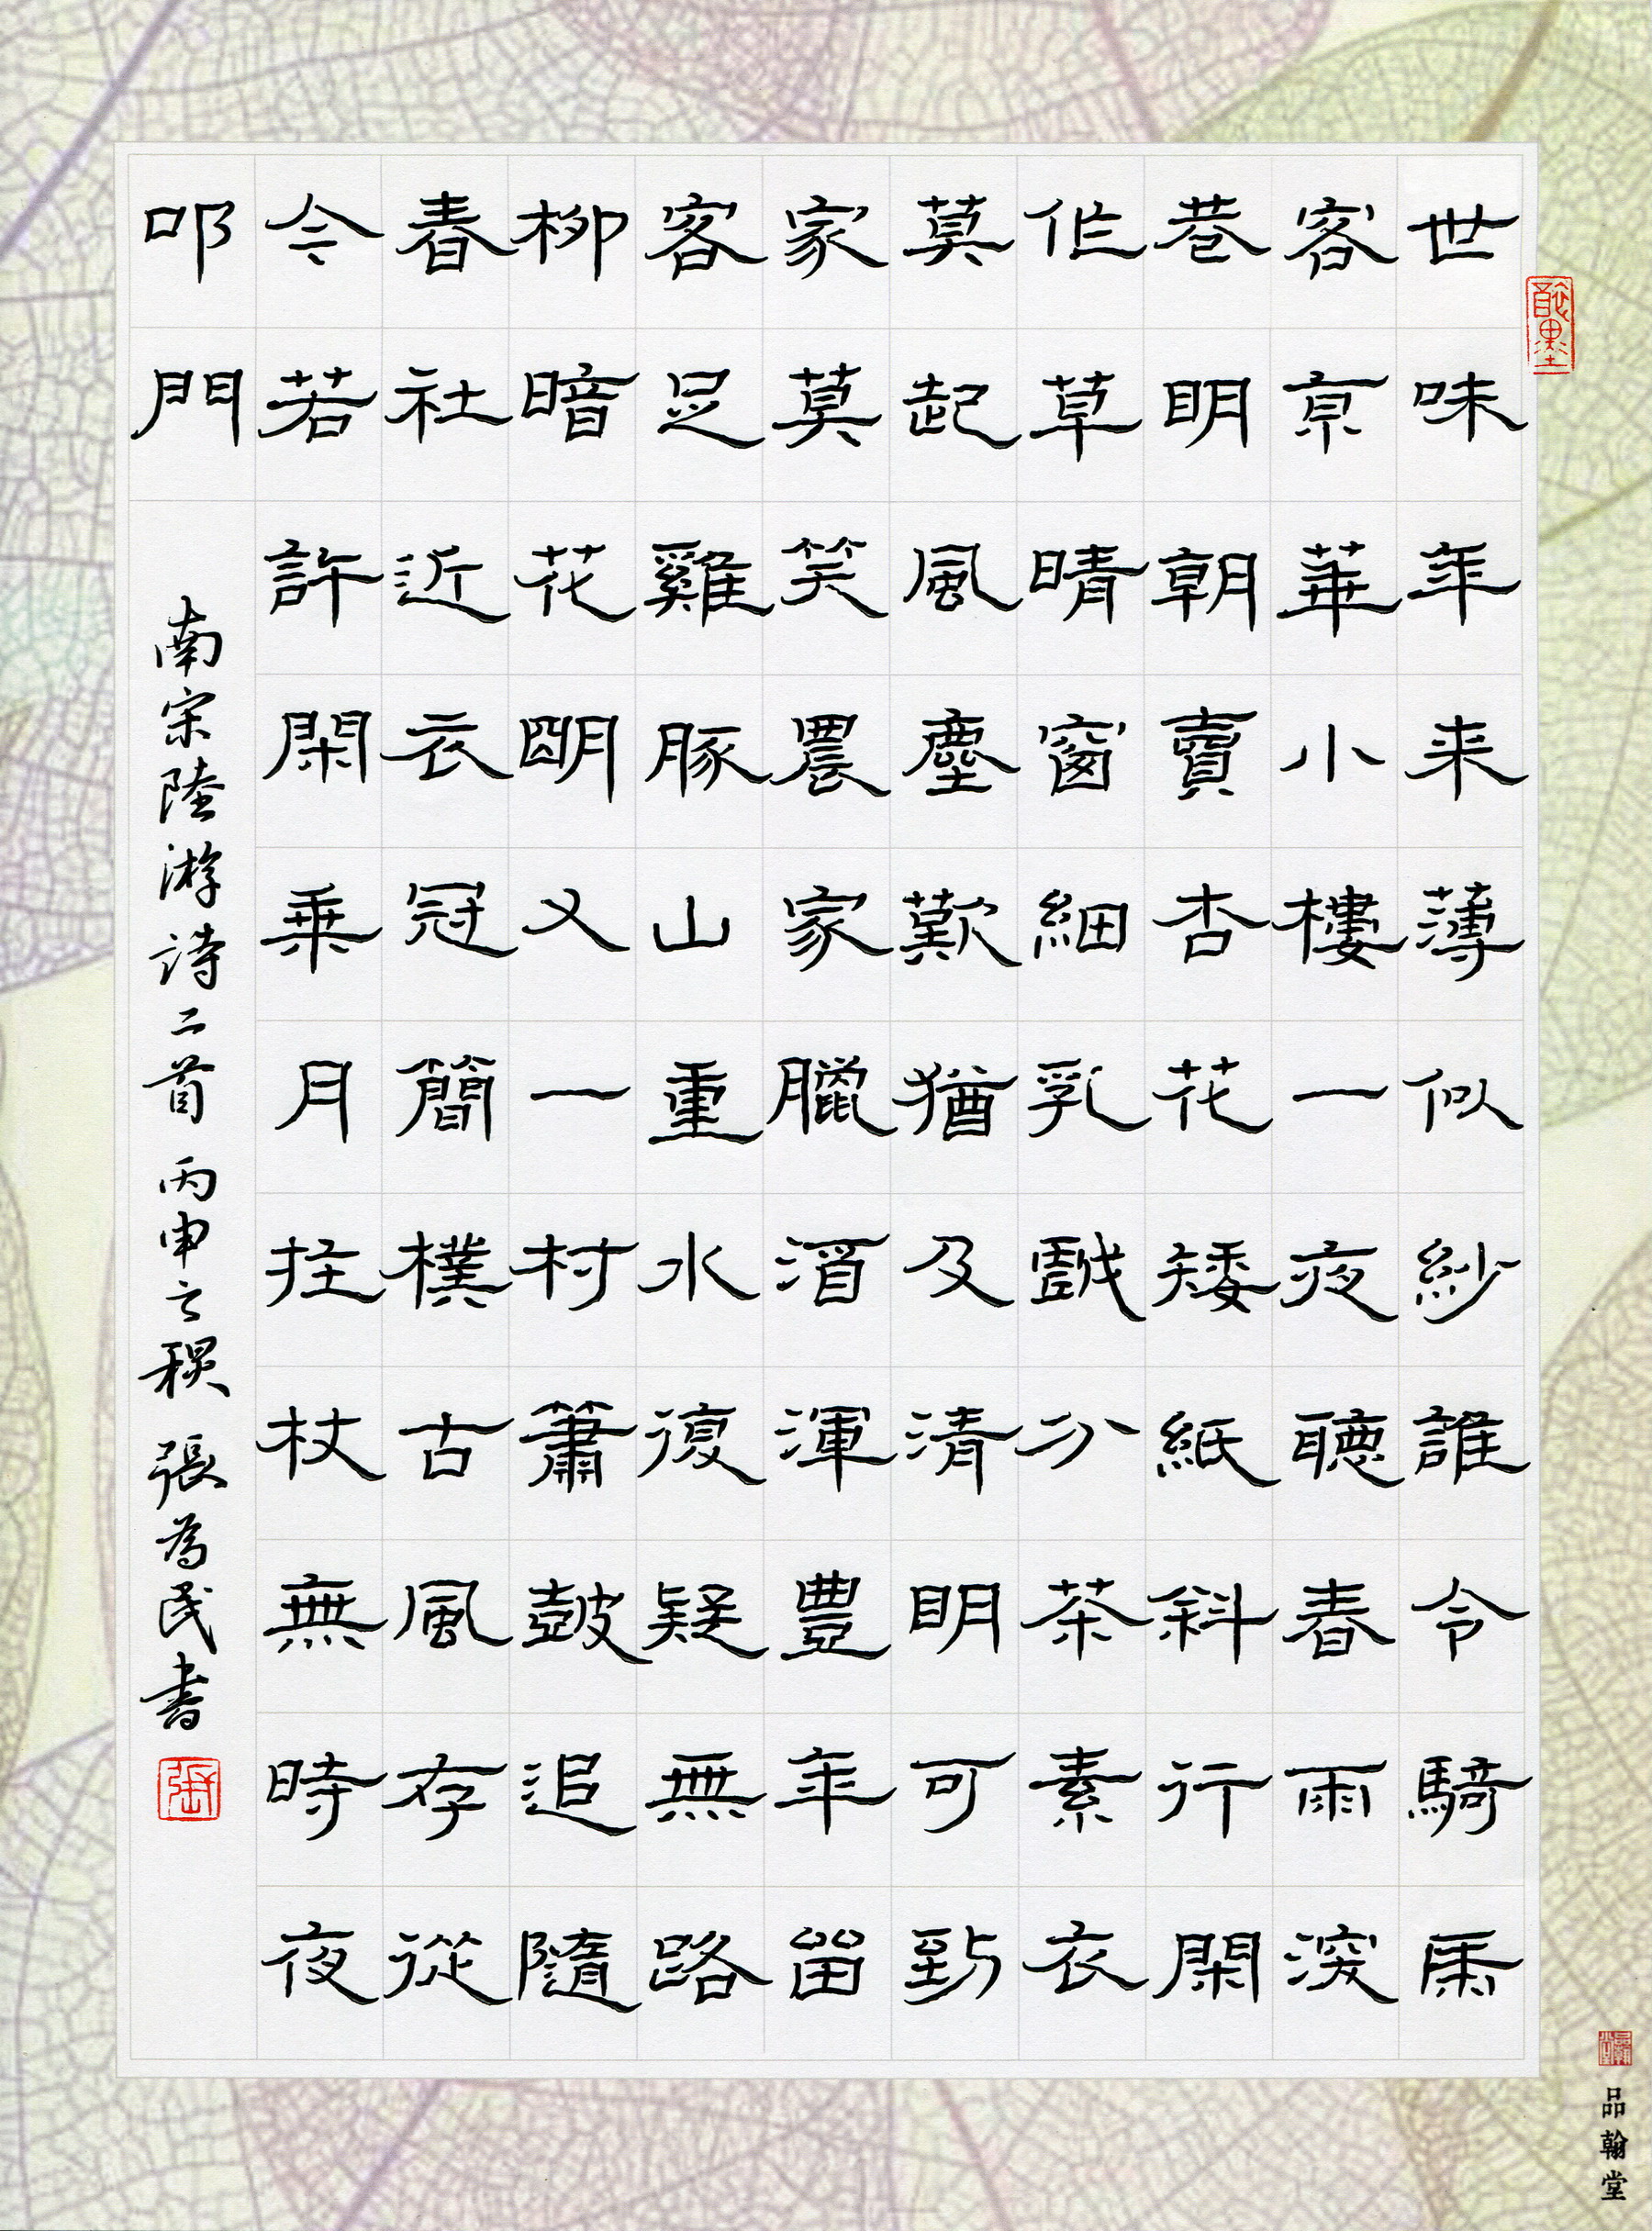 世味年来薄似紗誰令騎馬
客京華小樓一夜聽春雨深
巷明朝賣杏花矮紙斜行閑
作草晴窗細乳戲分茶素衣
莫起風塵歎猶及清明可到
家莫笑農家臘酒渾豊年留
客足雞豚山重水復疑無路
柳暗花明又一村簫鼓追隨
春社近衣冠簡樸古風存從
今若許閑乘月拄杖無時夜
叩門
南宋陸游詩二首 丙申之秋 張為民書
張
品翰堂
品翰堂